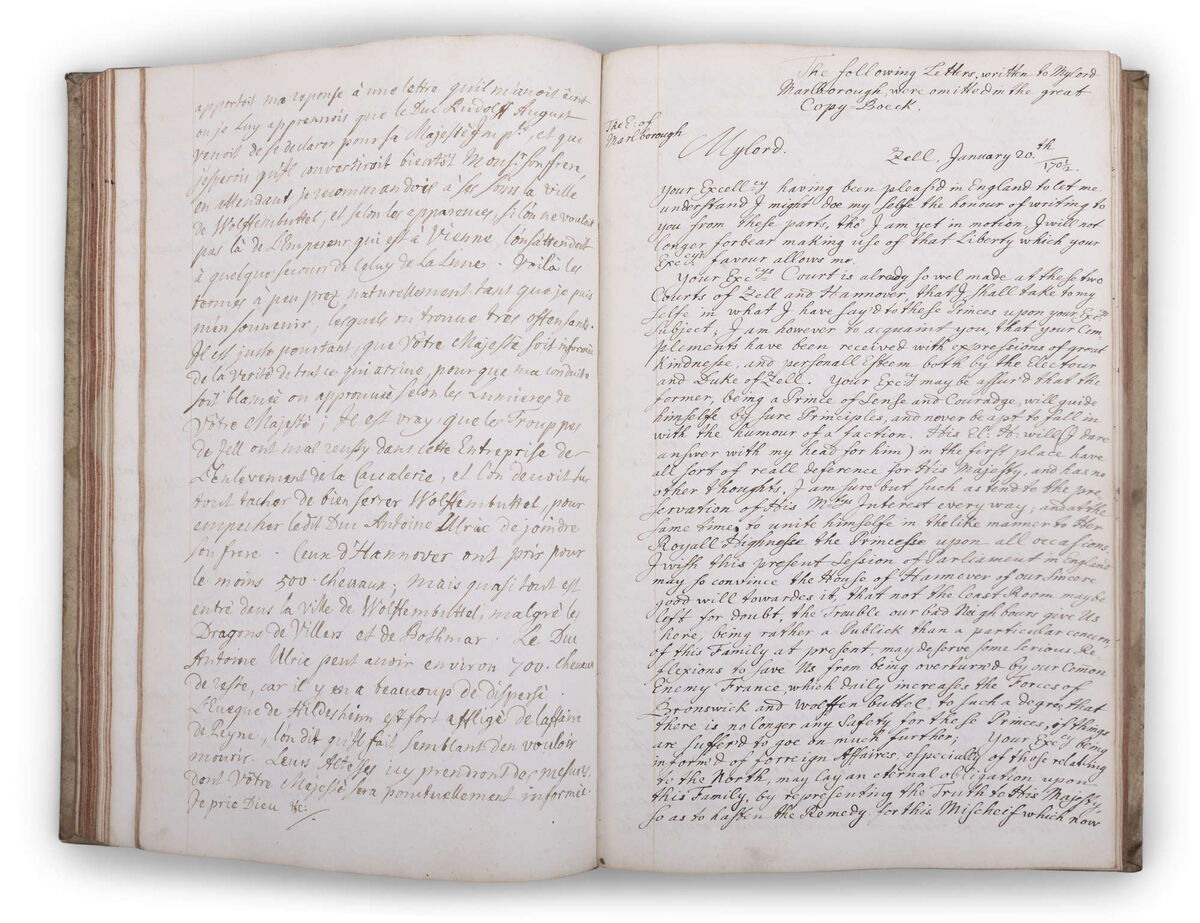 apportoit ma reponse à une lettre qu'il m'avoit écrit
où je luy apprenois que le Duc Rudolff August
venoit de se declarer pour sa Majesté Imp.le, et que
j'esperois qu'il convertiroit bientôt Mons.r son frere,
en attendant je recommandois à ses soins la ville
de Wolffembuttel, et selon les apparences, si l'on ne vouloit
pas là de L'Empereur qui est à Vienne, l'on s'attendoit
à quelque secours de Celuy de La Lune. Voilà les
termes à peu prez naturellement tant que je puis
m'en souvenir, lesquels on trouve tres offensants.
Il est juste pourtant, que Vôtre Majesté soit informée
de la verité de tout ce qui arrive, pour que ma conduite
soit blamée ou approuvée selon les Lumieres de
Vôtre Majesté; Il est vray que les Trouppes
de Zell ont mal reussy dans cette Entreprise de
L'enlevement de la Cavalerie, et l'on devoit sur
tout tacher de bien serrer Wolffembuttel, pour
empecher ledit Duc Antoine Ulric de joindre
son frere. Ceux d'Hannover ont pris pour
le moins 500. chevaux; mais quasi tout est
entré dans la ville de Wolffembuttel, malgré les
Dragons de Villers et de Bothmar. Le Duc
Antoine Ulric peut avoir environ 700. chevaux
de reste, car il y en a beaucoup de dispersé.
L'Eveque de Hildesheim est fort affligé de l'affaire
de Peyne, l'on dit qu'il fait semblant d'en vouloir
mourir. Leurs Altesses icy prendront des mesures
dont Vôtre Majesté sera ponctuellement informée.
Je prie Dieu &c:
The following Letters, written to Mylord
Marlborough, were omitted in the great
Copy-Boeck.
The E: of
Marlborough
Mylord.
Zell, January 20.th 170½.
Your Excell:cy having been pleas'd in England to let me
understand I might doe my selfe the honour of writing to
you from these parts, tho' I am yet in motion, I will not
longer forbear making use of that Liberty which your
Exc:cys favour allows me.
Your Exc:cys Court is already so wel made at these two
Courts of Zell and Hannover, that I shall take to my
selfe in what I have say'd to these Princes upon your Exc:cys
Subject; I am however to acquaint you, that your Com
plements have been received with expressions of great
Kindnesse, and personall Esteem both by the Electour
and Duke of Zell. Your Exc:cy may be assur'd that the
former, being a Prince of Sense and Couradge, will guide
himselfe by sure Principles, and never be apt to fall in
with the humour of a faction. His El: H: will (I dare
answer with my head for him) in the first place have
all sort of reall deference for His Majesty, and has no
other thoughts, I am sure but such as tend to the pre
servation of His M:tys Interest every way; and at the
same time, to unite himselfe in the like manner to Her
Royall Highnesse the Princesse upon all occasions.
I wish this present Session of Parliament in England
may so convince the House of Hannover of our Sincere
good will towardes it, that not the least Room may be
left for doubt, the Trouble our bad Neighbours give Us
here, being rather a Publick than a particular concern
of this Family at present may deserve some serious Re
flexions to save Us from being overturn'd by our Comon
Enemy France, which daily increases the Forces of
Bronswick and Wolffenbuttel, to such a degree, that
there is no longer any Safety for these Princes, if things
are suffer'd to goe on much further; Your Exc:cy being
inform'd of forreign Affaires, especially of those relating
to the North, may lay an eternal obligation upon
this Family, by representing the Truth to His Majesty
so as to hasten the Remedy for this Mischeif which now